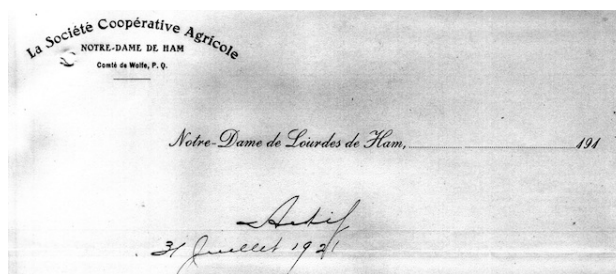 La Société Coopérative Agricole
NOTRE-DAME DE HAM
Comté de Wolfe, P. Q.
Notre-Dame de Lourdes de Ham, 191
Actif
31 Juillet 1921